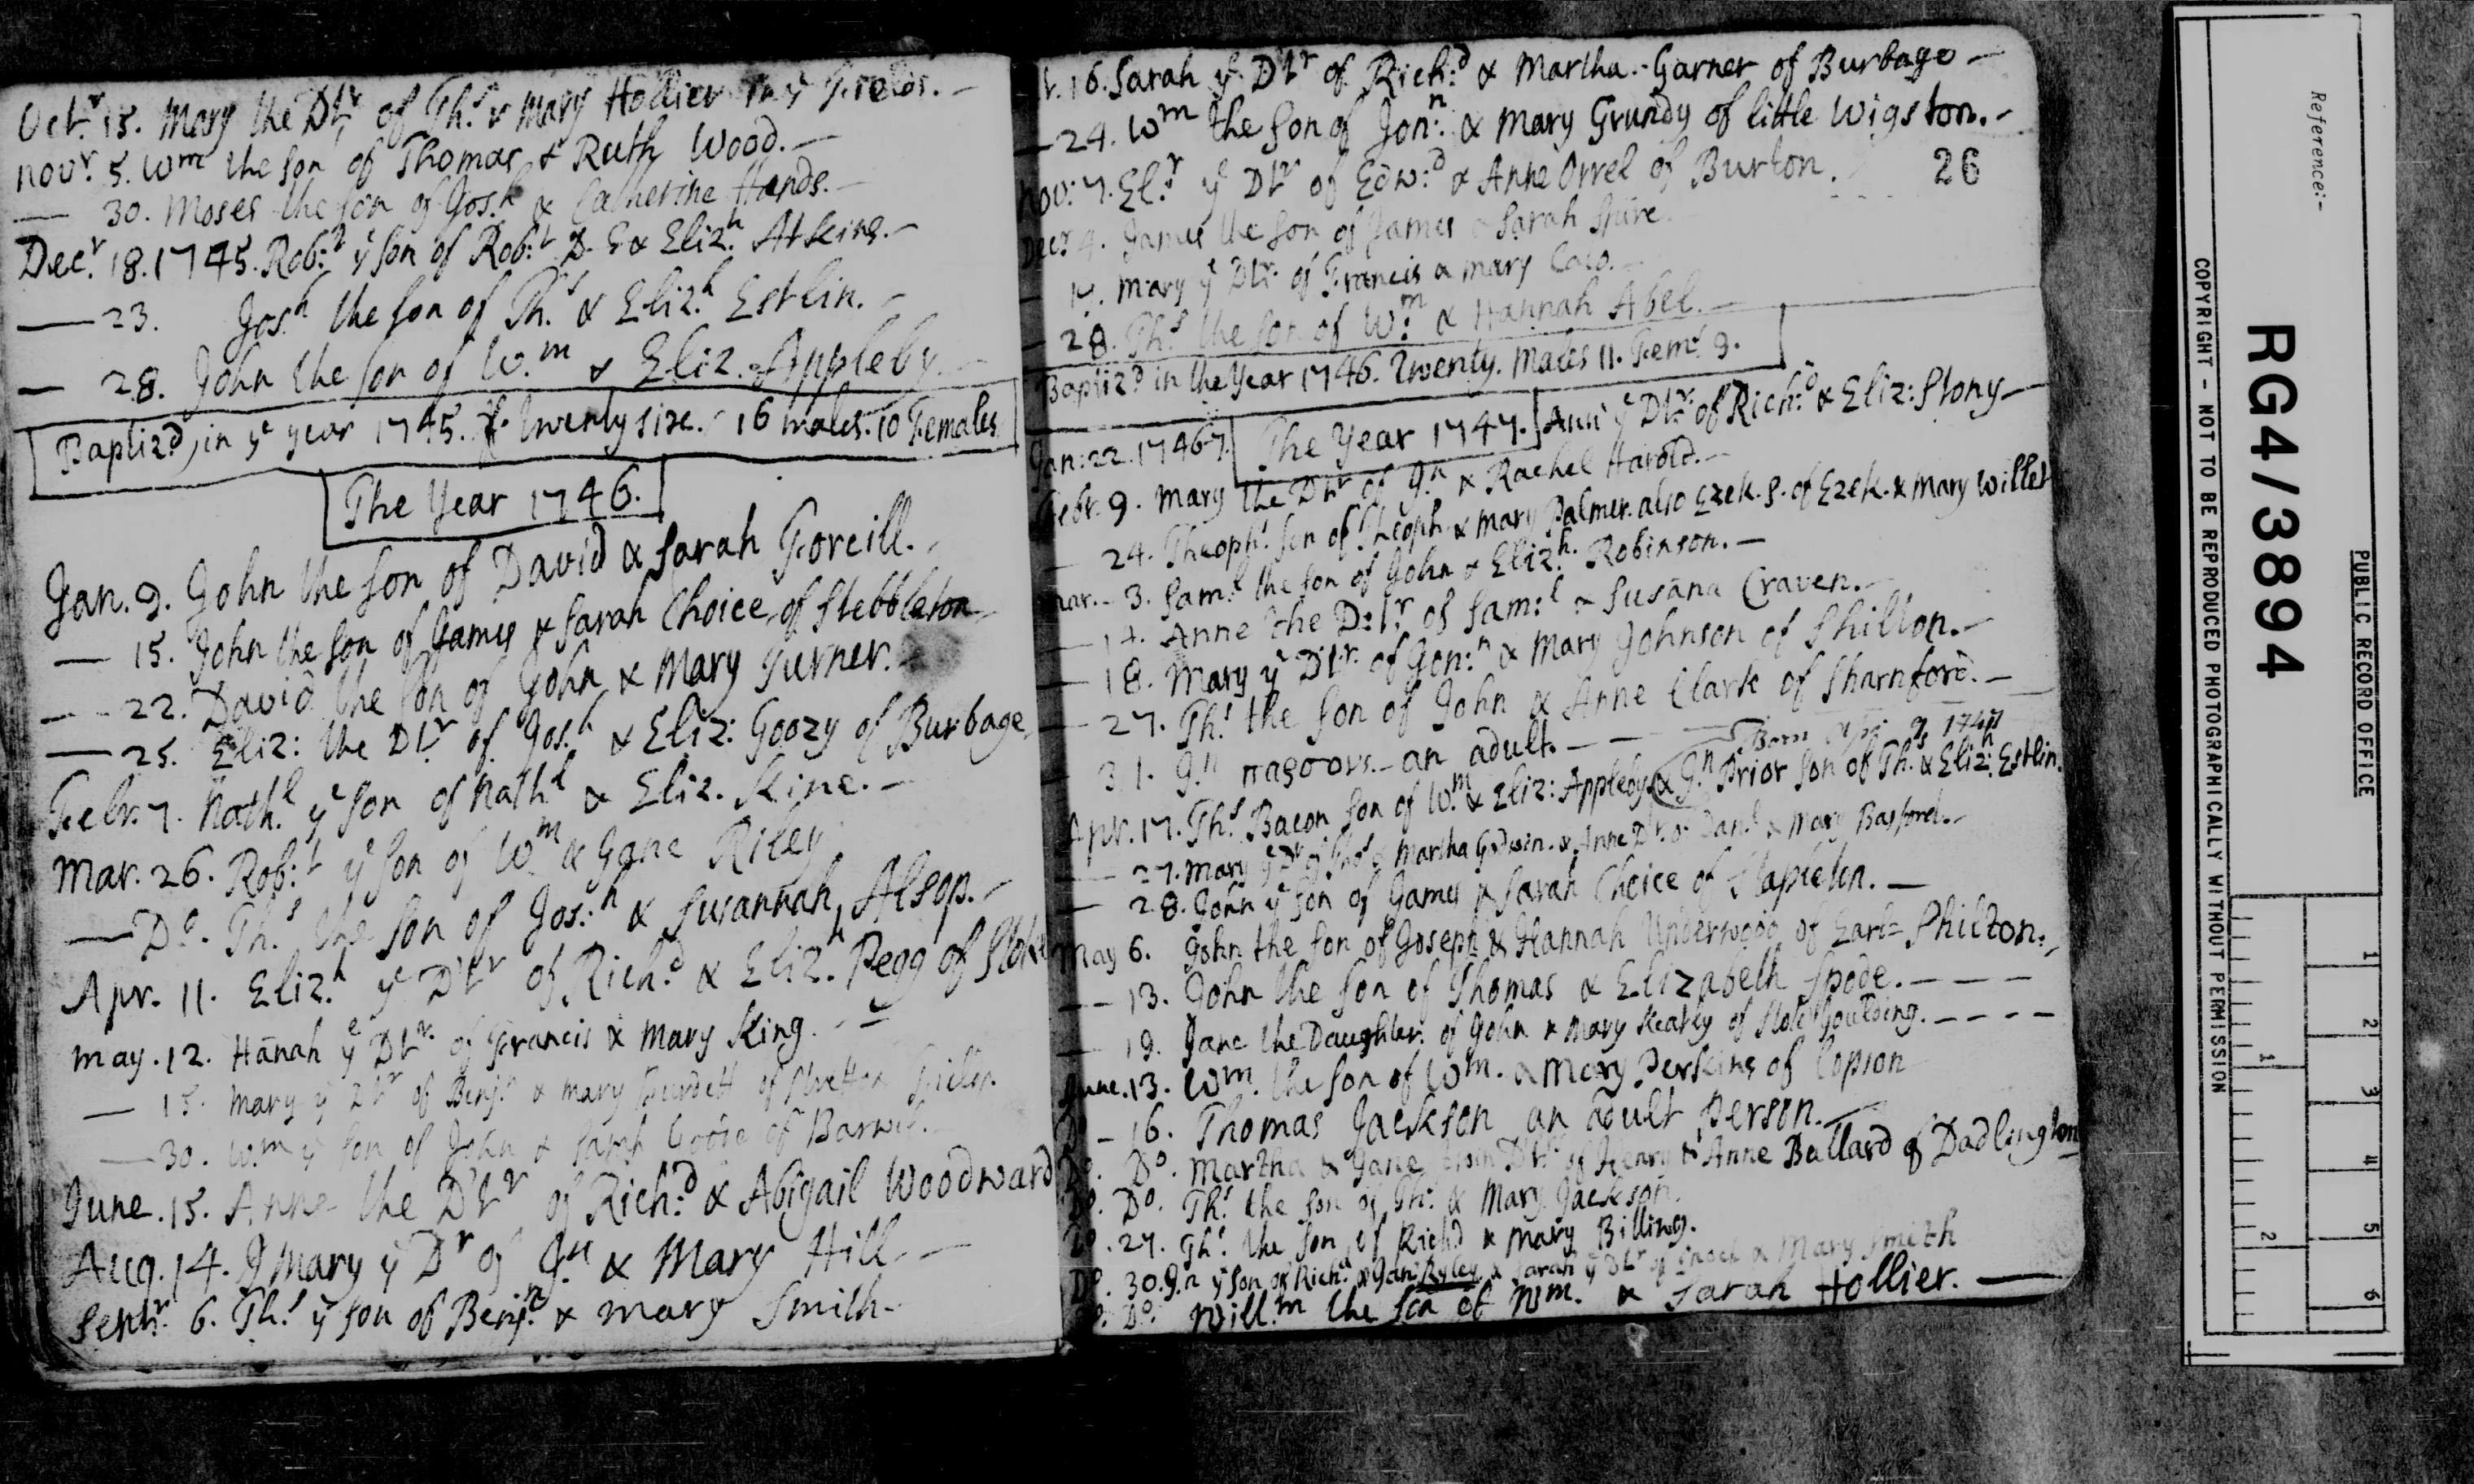 Octr. 15. Mary the Dtr. of Ths. & Mary Hollier in ye Fields. -
Novr. 5. Wm the son of Thomas & Ruth Wood. -
— 30. Moses the son of Josh. & Catherine Hands. -
Decr. 18. 1745. Robt. ye son of Robt. & Elizh. Atkins. -
— 23. Josh. the son of Ths. & Elizh. Estlin. -
— 28. John the son of Wm. & Eliz. Appleby. -
Baptizd, in ye year 1745. Twenty sixe. 16 males. 10 Females
The Year 1746.
Jan. 9. John the son of David & Sarah Foreill.
— 15. John the son of James & Sarah Choice, of Stebbleton
— 22. David the son of John & Mary Turner.
— 25. Eliz: the Dtr of Josh. & Eliz: Goozy of Burbage
Febr. 7. Nathl. ye son of Nathl. & Eliz. Kine. -
Mar. 26. Rob:t ye son of Wm & Jane Riley
— Do. Ths. the son of Jos:h & Susannah Alsop. -
Apr. 11. Elizh. ye Dtr of Richd. & Elizh. Pegg of Stoke
May. 12. Hanah ye Dtr. of Francis & Mary King. -
— 15. Mary ye Dtr of Benjn. & Mary Burdett of
— 30. Wm ye son of John & Sarah of Barwell. -
June. 15. Anne the Dtr of Rich:d & Abigail Woodward
Aug. 14. Mary ye Dr of Jn & Mary Hill -
Septr. 6. Ths. ye son of Benjn. & Mary Smith -
16. Sarah ye Dtr of Rich:d & Martha Garner of Burbage -
— 24. Wm the son of Jon:n & Mary Grundy of little Wigston. -
Nov: 7. Elr. ye Dtr of Edw:d & Anne Orrel of Burton.
26
Decr 4. James the son of James & Sarah
Mary ye Dtr. of Francis & Mary
28. Ths. the son of Wm & Hannah Abel. -
Baptizd in the Year 1746. Twenty. Males 11. Fems. 9.
Jan: 22. 17467. The Year 1747. Ann ye Dtr. of Rich:d & Eliz: Stony -
Febr. 9. Mary the Dtr of Jn & Rachel Harold. -
24. Theoph. son of Theoph. & Mary Palmer. also Ezek. S. of Ezek. & Mary Willet
Mar. - 3. Saml. the son of John & Elizh. Robinson. -
— 14. Anne the D:tr of Sam:l & Susana Craven. -
18. Mary ye Dtr. of Jon:n & Mary Johnson of Shilton. -
— 27. Ths. the son of John & Anne Clark of Sharnford. -
31. Jn - an adult. -
Born 1747
Apr. 17. Ths. Bacon son of Wm. & Eliz: Appleby & Jn Prior son of Ths. & Elizh. Estlin.
— 27. Mary ye Dr of Thos & Martha Godwin. & Anne Dtr. of Danl & Mary Basford. -
— 28. John ye son of James & Sarah Choice of Stapleton. -
May 6. John the son of Joseph & Hannah Underwood of Earl= Shilton.
— 13. John the son of Thomas & Elizabeth Spode. - - - -
19. Jane the Daughter. of John & Mary Keatly of Stoke Goulding. - - - -
June. 13. Wm. the son of Wm. & Mary Perkins of Copson
Do - 16. Thomas Jackson an adult Person. -
Do. Do. Martha & Jane twin Dtrs of Henry & Anne Ballard of Dadlington
Do. Do. Ths. the son of Ths. & Mary Jackson.
Do. 27. Ths. the son of Richd & Mary Billing.
Do. 30. Jn ye son of Richd. & Jane Ryley & Sarah ye Dtr of Enoch & Mary Smith
Do. Do. Willm the son of Wm. & Sarah Hollier. —
Reference:-
RG4/3894
PUBLIC RECORD OFFICE
COPYRIGHT - NOT TO BE REPRODUCED PHOTOGRAPHICALLY WITHOUT PERMISSION
1
2
3
4
5
6
1
2